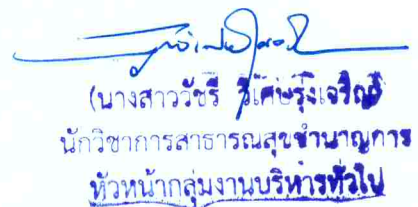 (นางสาววัชรี วิเศษรุ่งเจริญ)
นักวิชาการสาธารณสุขชำนาญการ
หัวหน้ากลุ่มงานบริหารทั่วไป